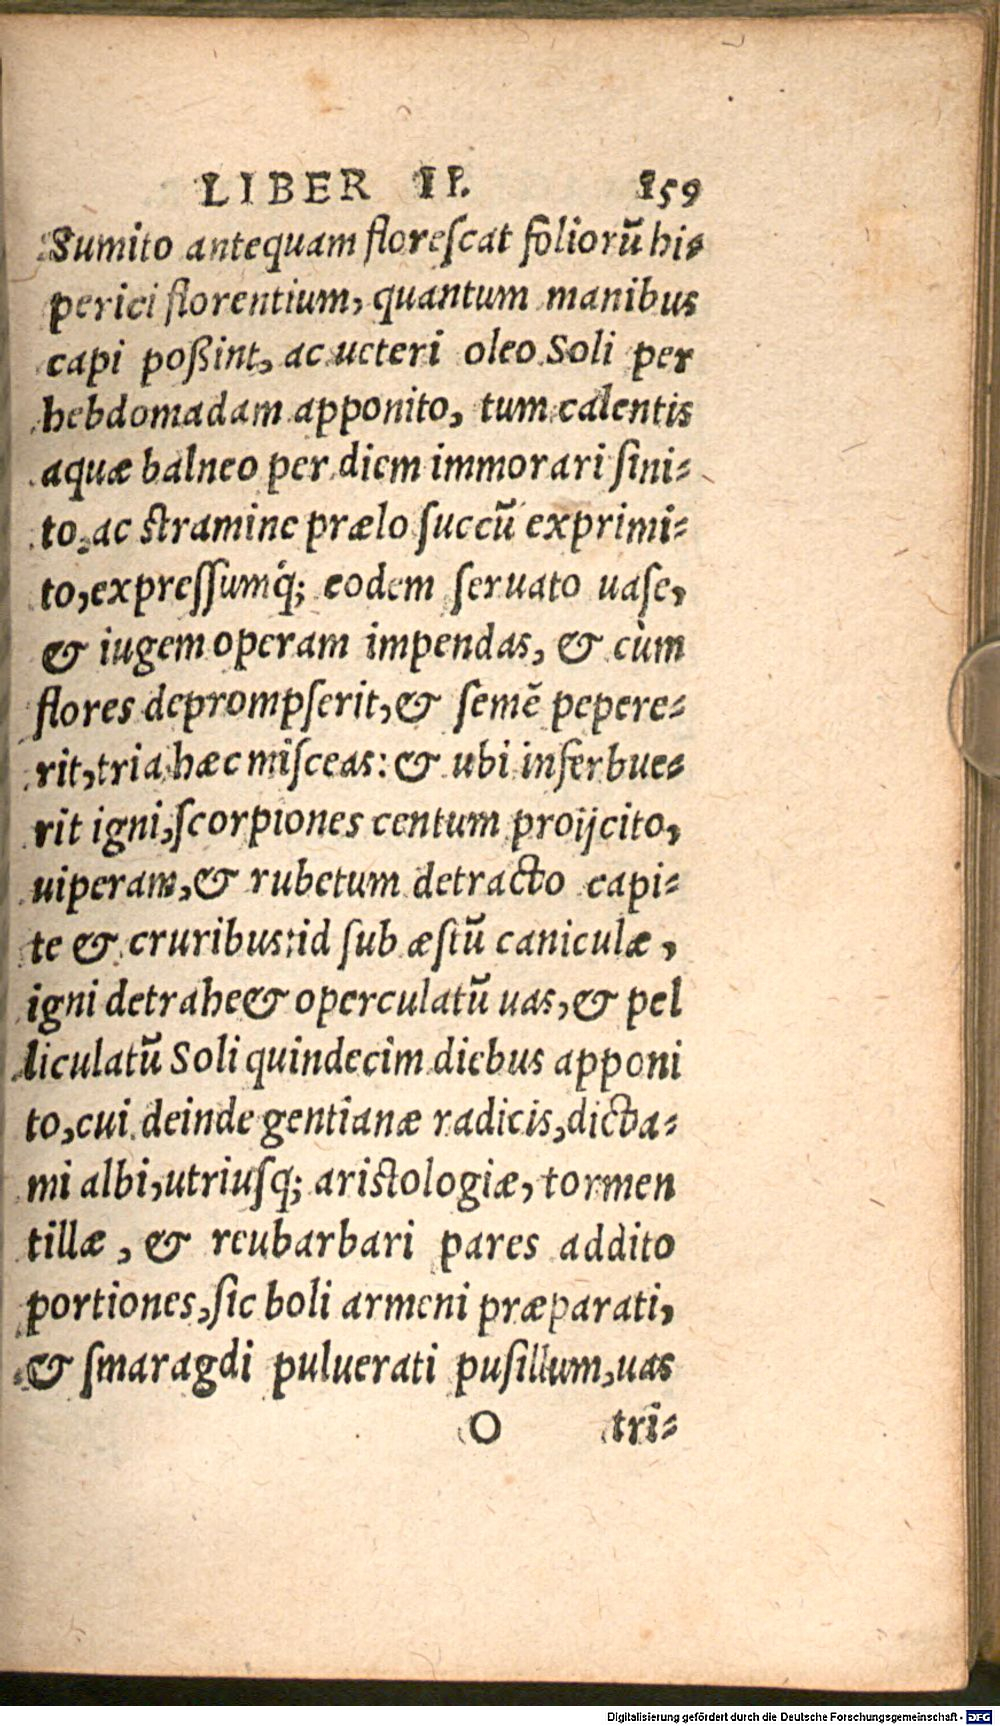 LIBER II. 159
Sumito antequam floreſcat foliorũ hi-
perici florentium, quantum manibus
capi poßint, ac ueteri oleo Soli per
hebdomadam apponito, tum calentis
aquæ balneo per diem immorari ſini-
to, ac ſtramine prælo ſuccũ exprimi-
to, expreſſumq́; eodem ſeruato uaſe,
& iugem operam impendas, & cùm
flores deprompſerit, & ſemẽ pepere-
rit, tria hæc miſceas: & ubi inferbue-
rit igni, ſcorpiones centum proijcito,
uiperam, & rubetum detracto capi-
te & cruribus: id ſub æſtũ caniculæ,
igni detrahe & operculatũ uas, & pel
liculatũ Soli quindecim diebus apponi
to, cui deinde gentianæ radicis, dicta-
mi albi, utriuſq; ariſtologiæ, tormen
tillæ, & reubarbari pares addito
portiones, ſic boli armeni præparati,
& ſmaragdi puluerati puſillum, uas
O tri-
Digitalisierung gefördert durch die Deutsche Forschungsgemeinschaft - DFG